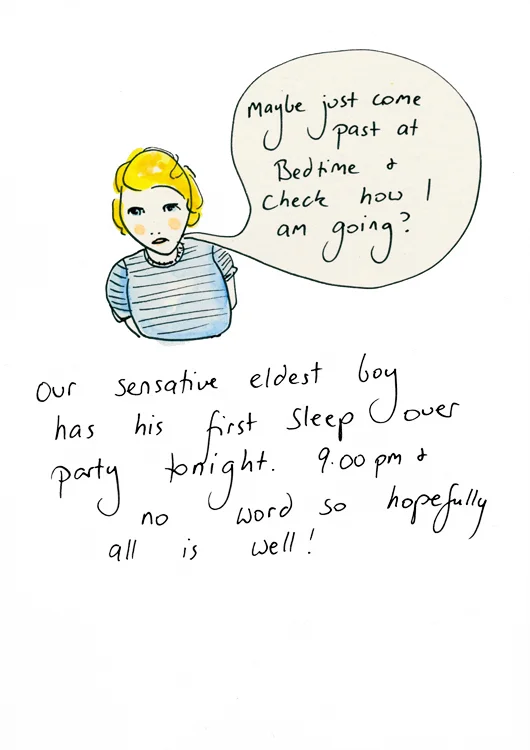 Maybe just come
past at
Bedtime &
Check how I
am going?
Our sensative eldest boy
has his first sleep over
party tonight. 9.00 pm &
no word so hopefully
all is well!